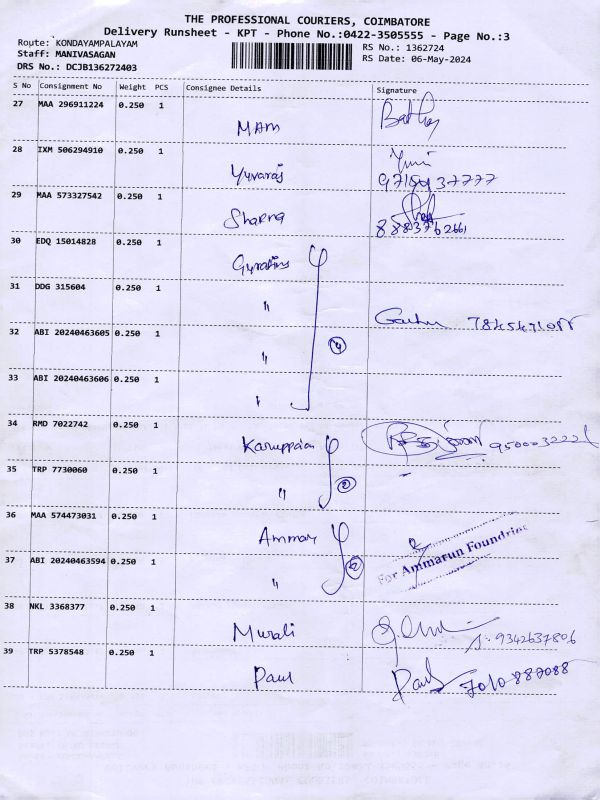 THE PROFESSIONAL COURIERS, COIMBATORE
Delivery Runsheet - KPT - Phone No.:0422-3505555 - Page No.:3
Route: KONDAYAMPALAYAM
Staff: MANIVASAGAN
DRS No.: DCJB136272403
RS No.: 1362724
RS Date: 06-May-2024
S No Consignment No Weight PCS Consignee Details Signature
27 MAA 296911224 0.250 1
MAM
28 IXM 506294910 0.250 1
Yuvaraj
29 MAA 573327542 0.250 1
Sharna 8883762661
30 EDQ 15014828 0.250 1
31 DDG 315604 0.250 1
"
32 ABI 20240463605 0.250 1
" 4
33 ABI 20240463606 0.250 1
"
34 RMD 7022742 0.250 1
Karuppaian 9500032221
35 TRP 7730060 0.250 1
" 2
36 MAA 574473031 0.250 1
Ammar
For Ammarun Foundries
37 ABI 20240463594 0.250 1
" 2
38 NKL 3368377 0.250 1
Murali 9342637806
39 TRP 5378548 0.250 1
Paul Paul 7010887088